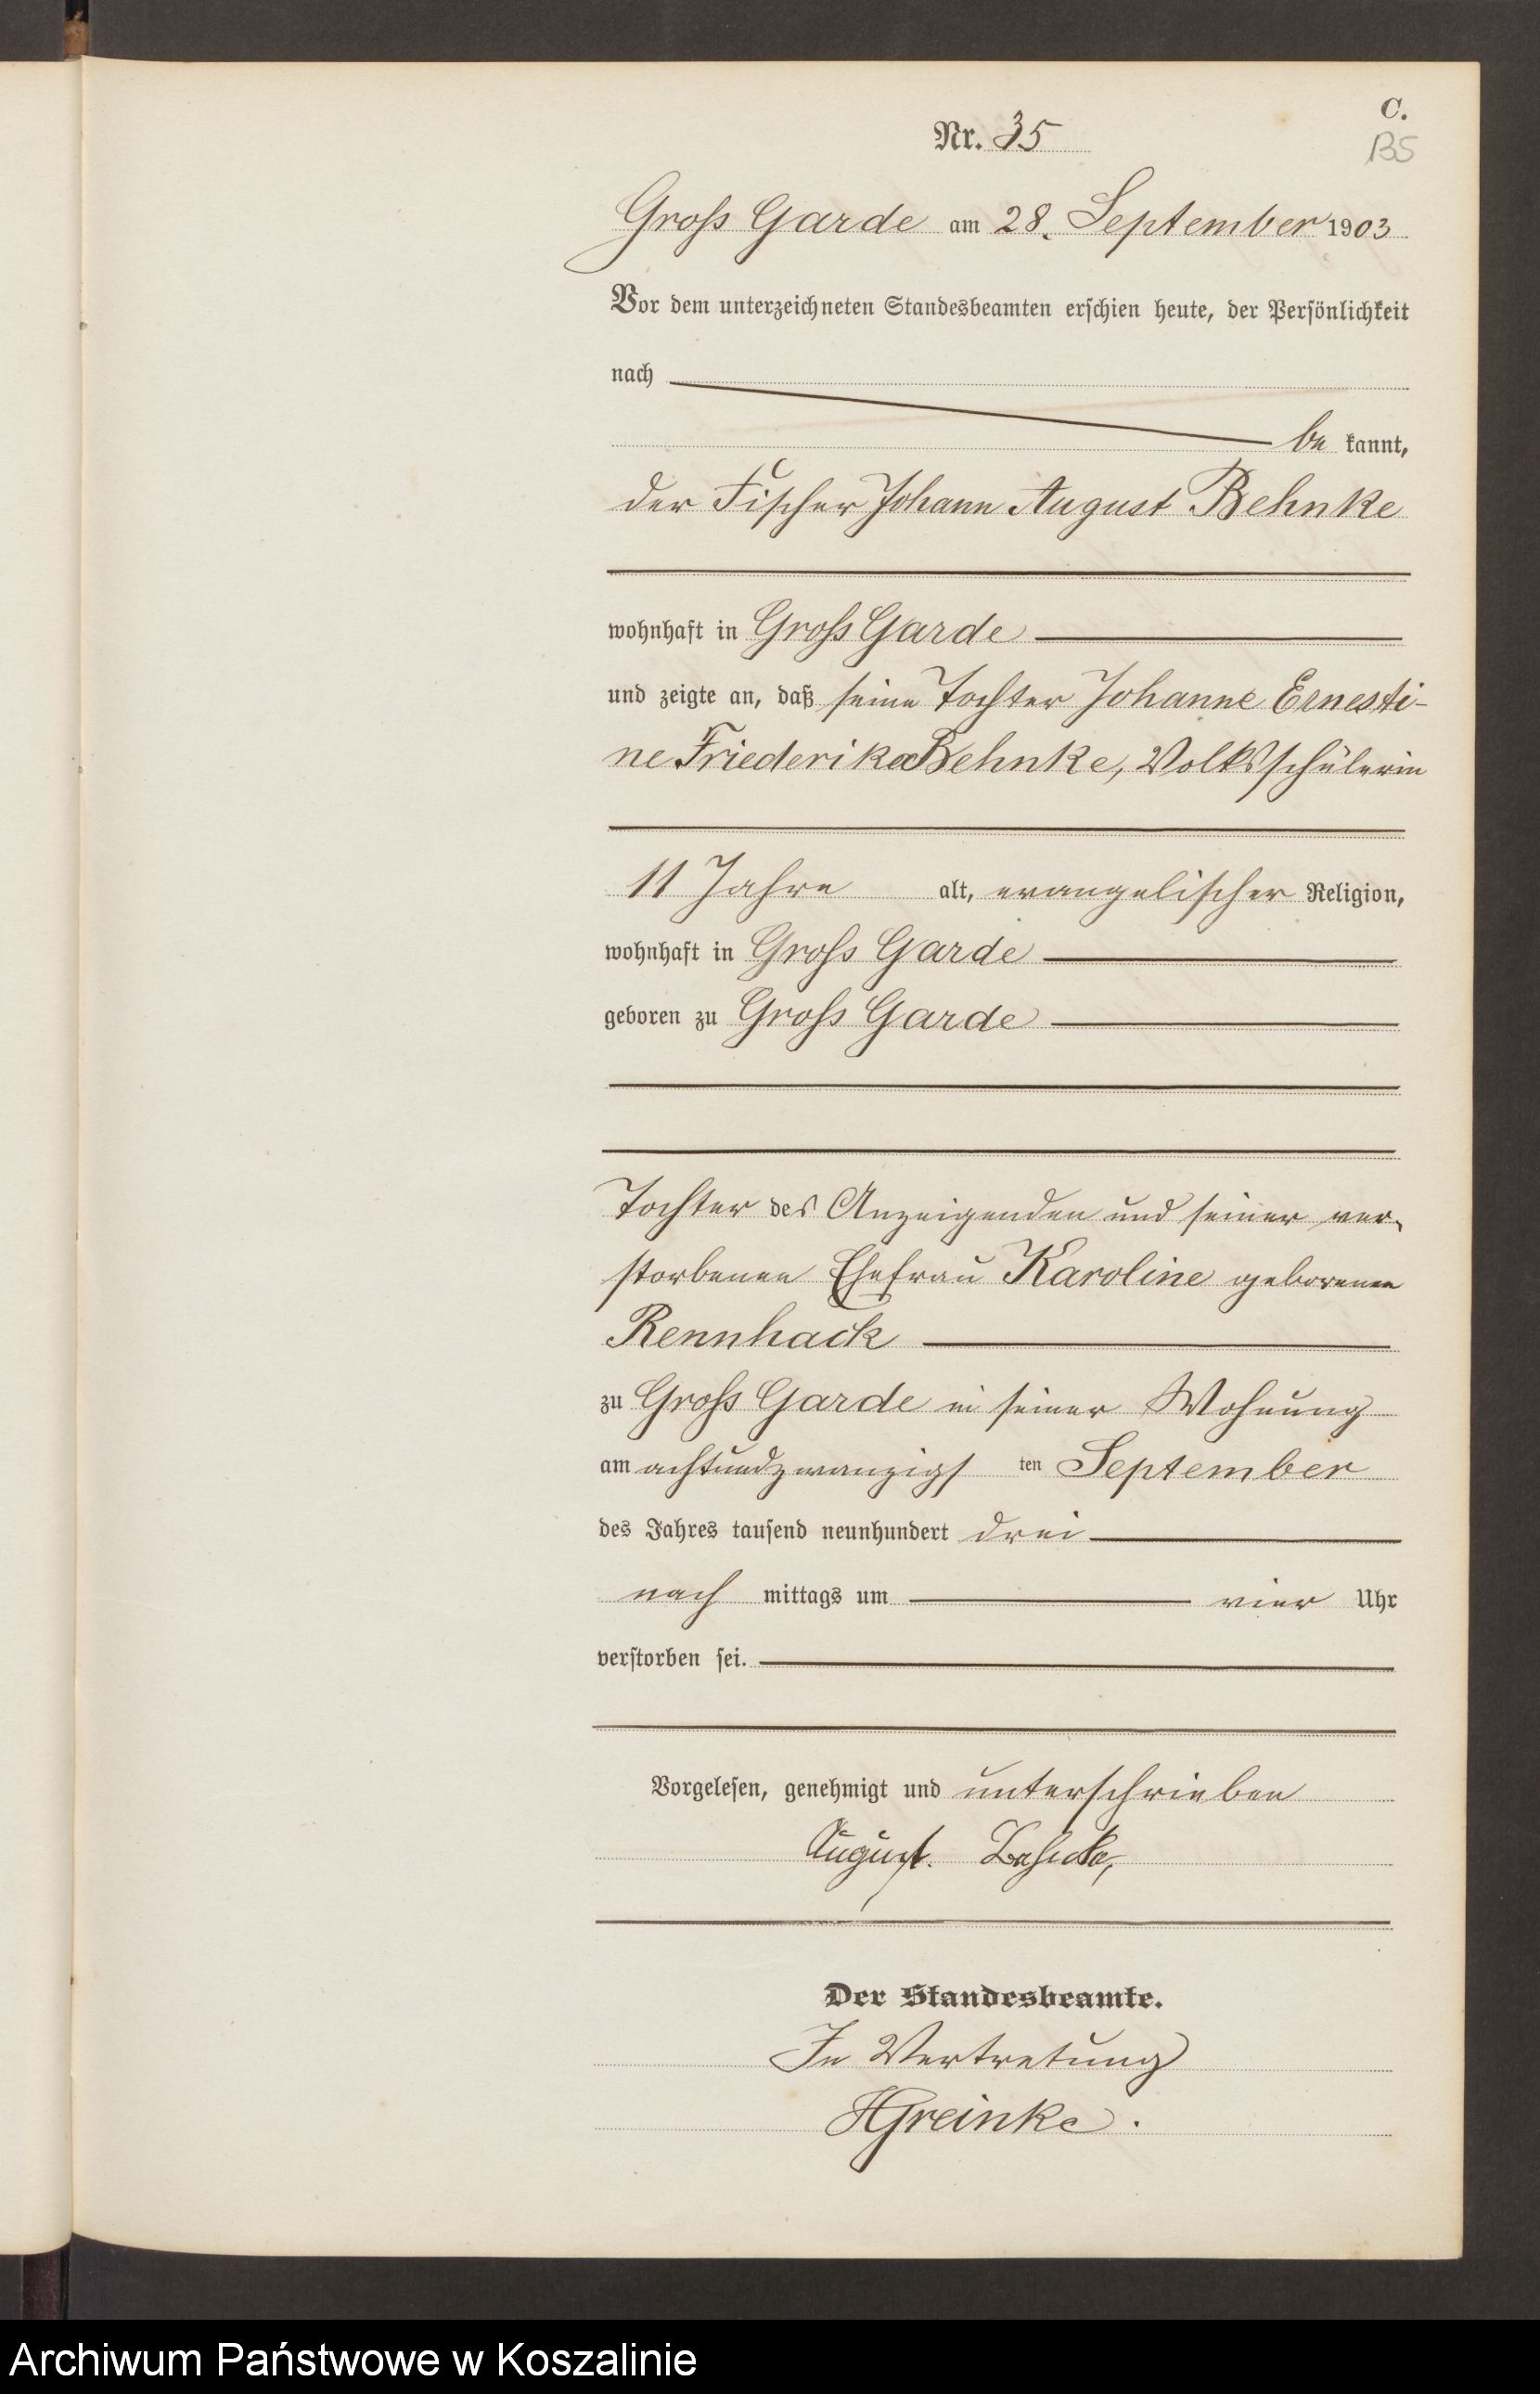 C.
Nr. 35
B5
Gross Garde am 28. September 1903
Vor dem unterzeichneten Standesbeamten erschien heute, der Persönlichkeit
nach
be kannt,
der Fischer Johann August Behnke
wohnhaft in Gross Garde
und zeigte an, daß seine Tochter Johanne Ernesti-
ne Friederike Behnke, Volksschülerin
11 Jahre alt, evangelischer Religion,
wohnhaft in Gross Garde
geboren zu Gross Garde
Tochter des Anzeigenden und seiner ver-
storbenen Ehefrau Karoline geborenen
Rennhack
zu Gross Garde in seiner Wohnung
am achtundzwanzigs ten September
des Jahres tausend neunhundert drei
nach mittags um vier Uhr
verstorben sei.
Vorgelesen, genehmigt und unterschrieben
August. Behnke,
Der Standesbeamte.
In Vertretung
HGreinke.
Archiwum Państwowe w Koszalinie